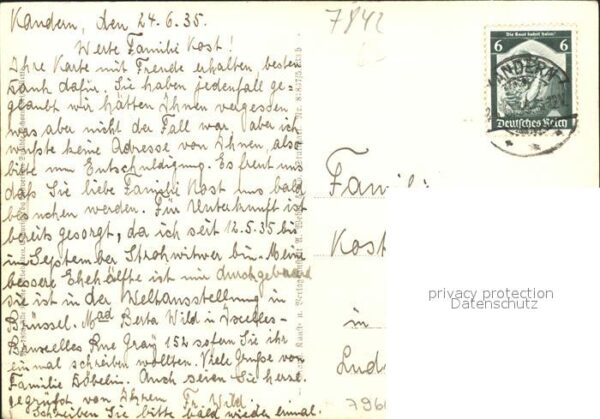 Kandern, den 24.6.35.
Werte Familie Kost!
Ihre Karte mit Freude erhalten besten
Dank dafür. Sie haben jedenfalls ge-
glaubt wir hätten Ihnen vergessen
was aber nicht der Fall war, aber ich
wußte keine Adresse von Ihnen, also
bitte um Entschuldigung. Es freut uns
daß Sie liebe Familie Kost uns bald
besuchen werden. Für Unterkunft ist
bereits gesorgt, da ich seit 12.5.35 bis
im September Strohwitwer bin. Meine
bessere Ehehälfte ist mir durchgebrannt
sie ist in der Weltausstellung in
Brüssel. Mad Berta Wild in Ixelles-
Bruxelles Rue Gray 152 sofern Sie ihr
einmal schreiben wollten. Viele Grüsse von
Familie Döbelin. Auch seien Sie herzl.
gegrüsst von Ihrem Fr. Wild
Schreiben Sie bitte bald wieder einmal.
7842
6 6
Deutsches Reich
KANDERN
Famili
Kost
in
Lud
7966
privacy protection
Datenschutz